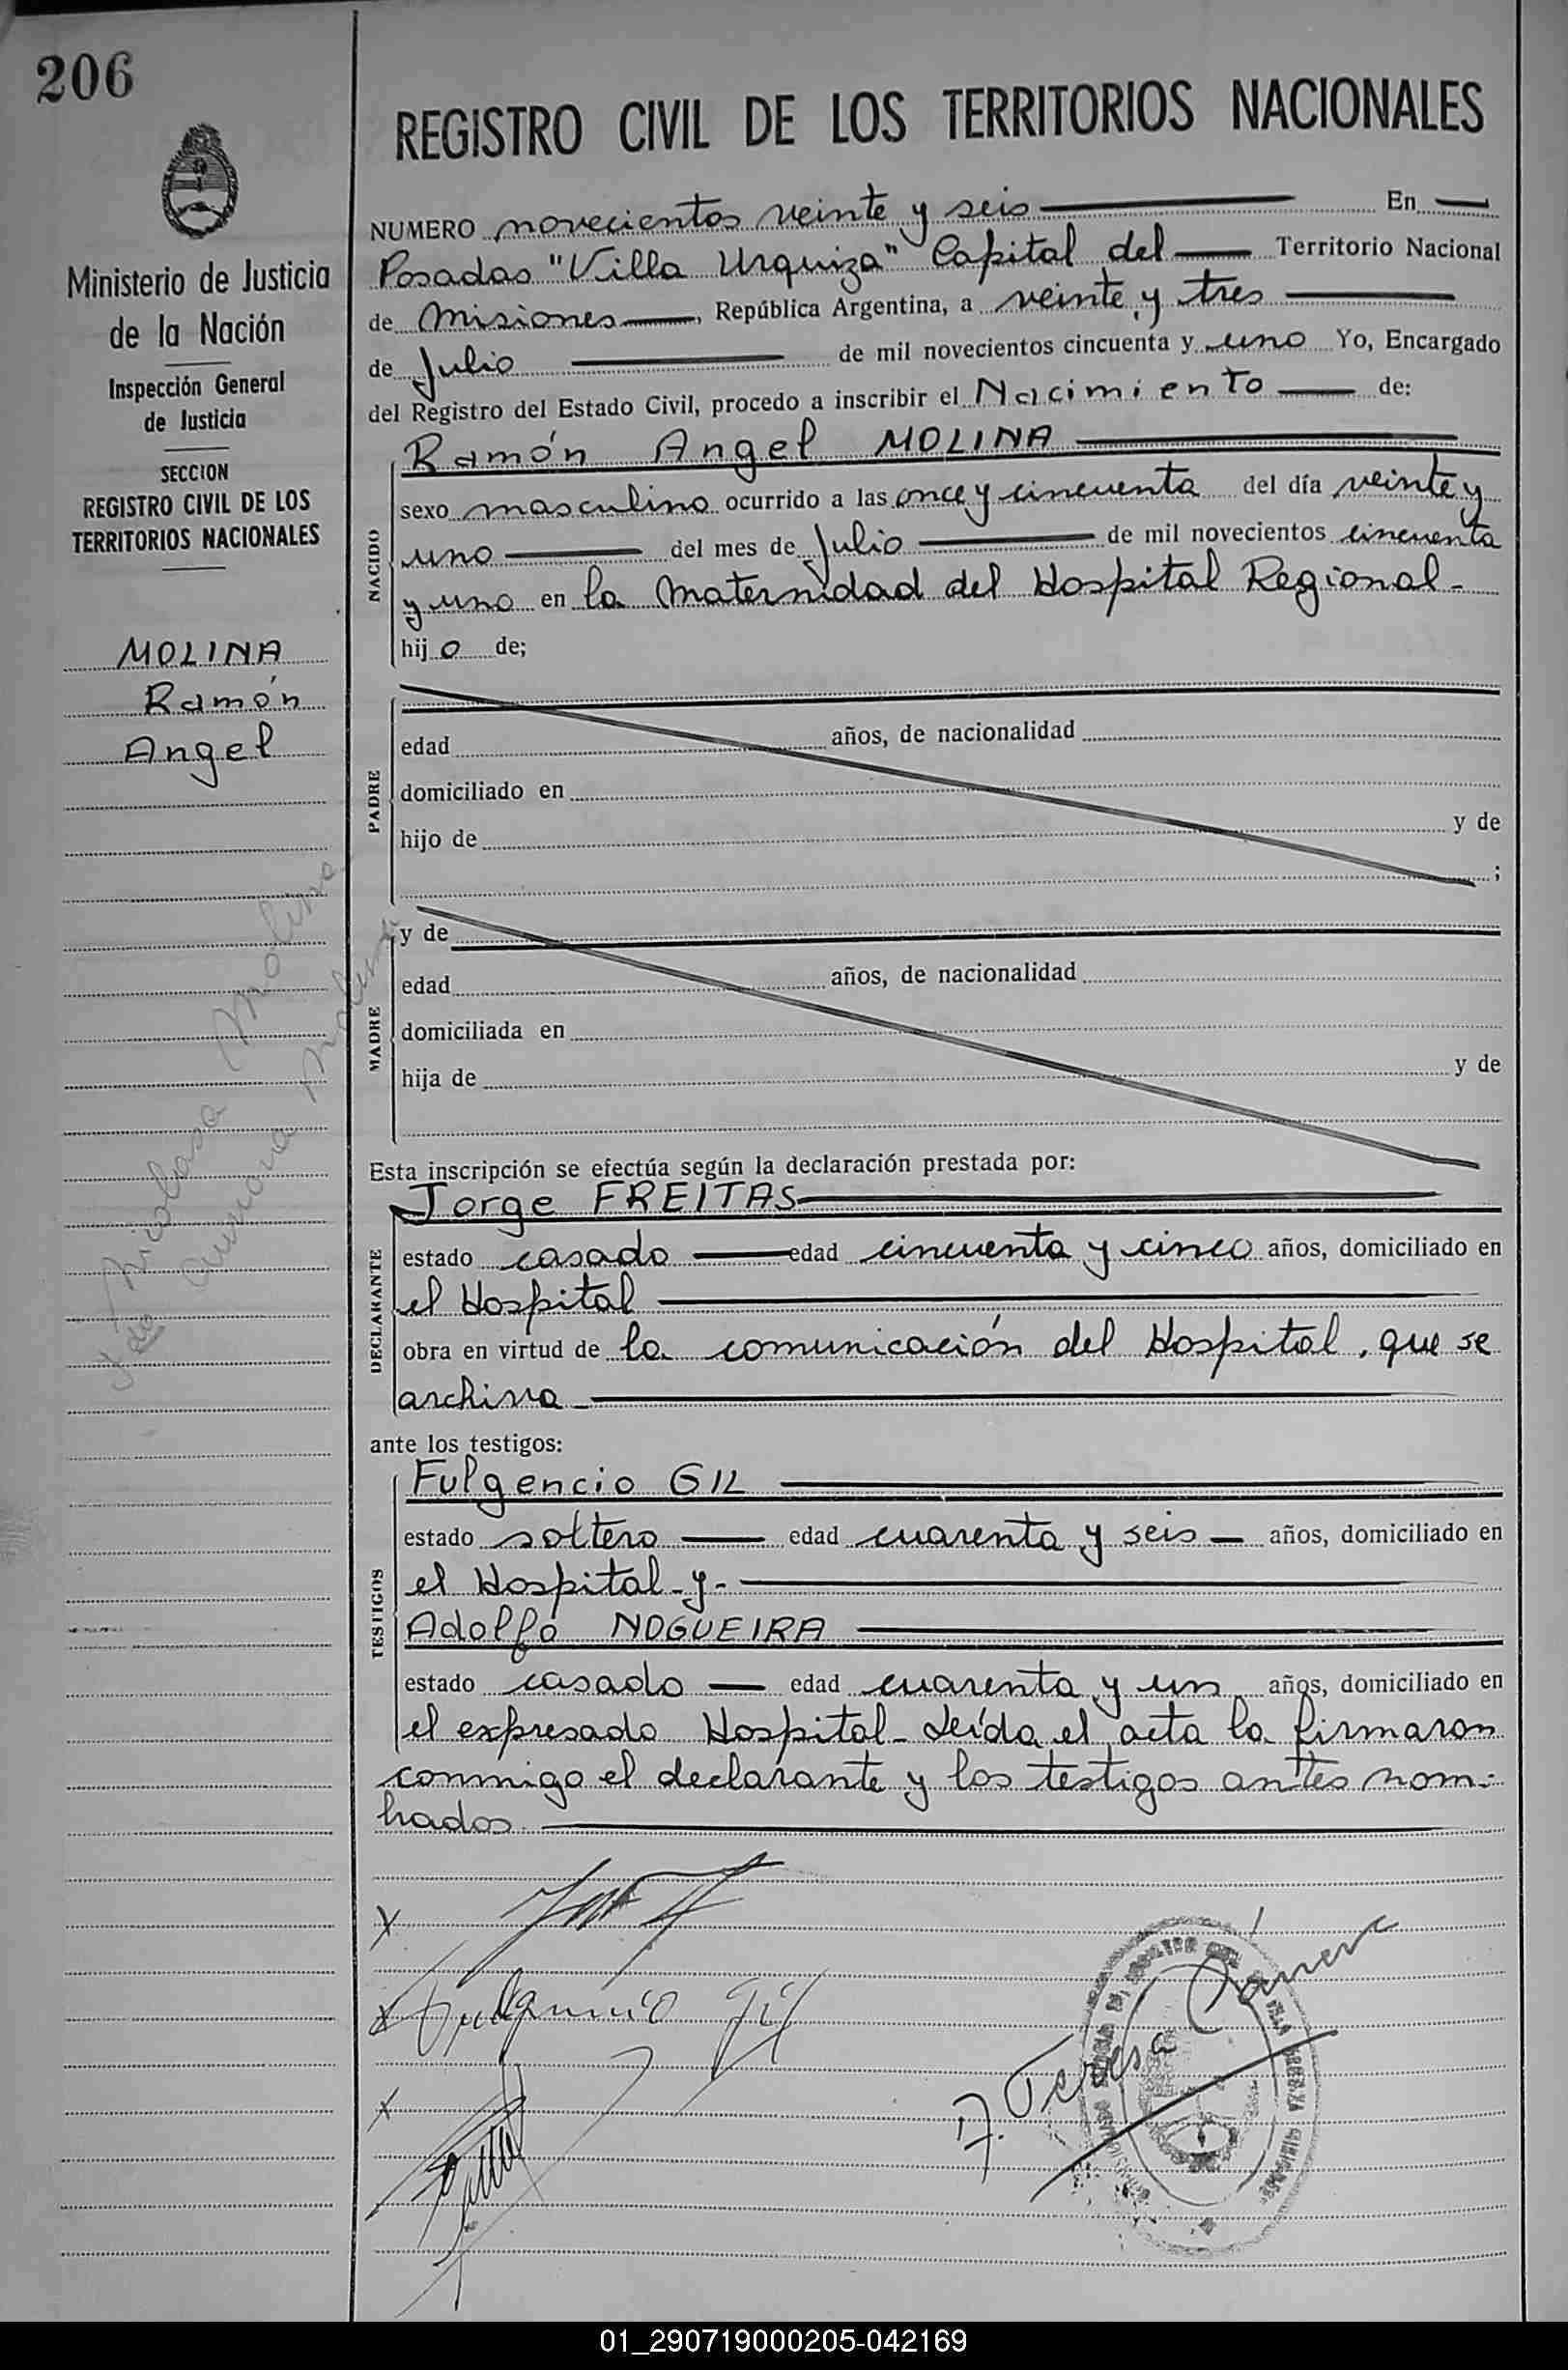 206
Ministerio de Justicia
de la Nación
Inspección General
de Justicia
SECCION
REGISTRO CIVIL DE LOS
TERRITORIOS NACIONALES
MOLINA
Ramón
Angel
Nicolasa Molina
REGISTRO CIVIL DE LOS TERRITORIOS NACIONALES
NUMERO novecientos veinte y seis En
Posadas "Villa Urquiza" Capital del Territorio Nacional
de Misiones, República Argentina, a veinte y tres
de Julio de mil novecientos cincuenta y uno Yo, Encargado
del Registro del Estado Civil, procedo a inscribir el Nacimiento de:
NACIDO
Ramón Angel MOLINA
sexo masculino ocurrido a las once y cincuenta del día veinte y
uno del mes de Julio de mil novecientos cincuenta
y uno en la Maternidad del Hospital Regional-
hijo de;
PADRE
edad años, de nacionalidad
domiciliado en
hijo de y de
;
MADRE
y de
edad años, de nacionalidad
domiciliada en
hija de y de
Esta inscripción se efectúa según la declaración prestada por:
DECLARANTE
Jorge FREITAS
estado casado edad cincuenta y cinco años, domiciliado en
el Hospital
obra en virtud de la comunicación del Hospital, que se
archiva
ante los testigos:
TESTIGOS
Fulgencio GIL
estado soltero edad cuarenta y seis años, domiciliado en
el Hospital-y-
Adolfo NOGUEIRA
estado casado edad cuarenta y un años, domiciliado en
el expresado Hospital- Leída el acta la firmaron
conmigo el declarante y los testigos antes nom-
brados
x
x Fulgencio Gil
x
Teresa
01_290719000205-042169